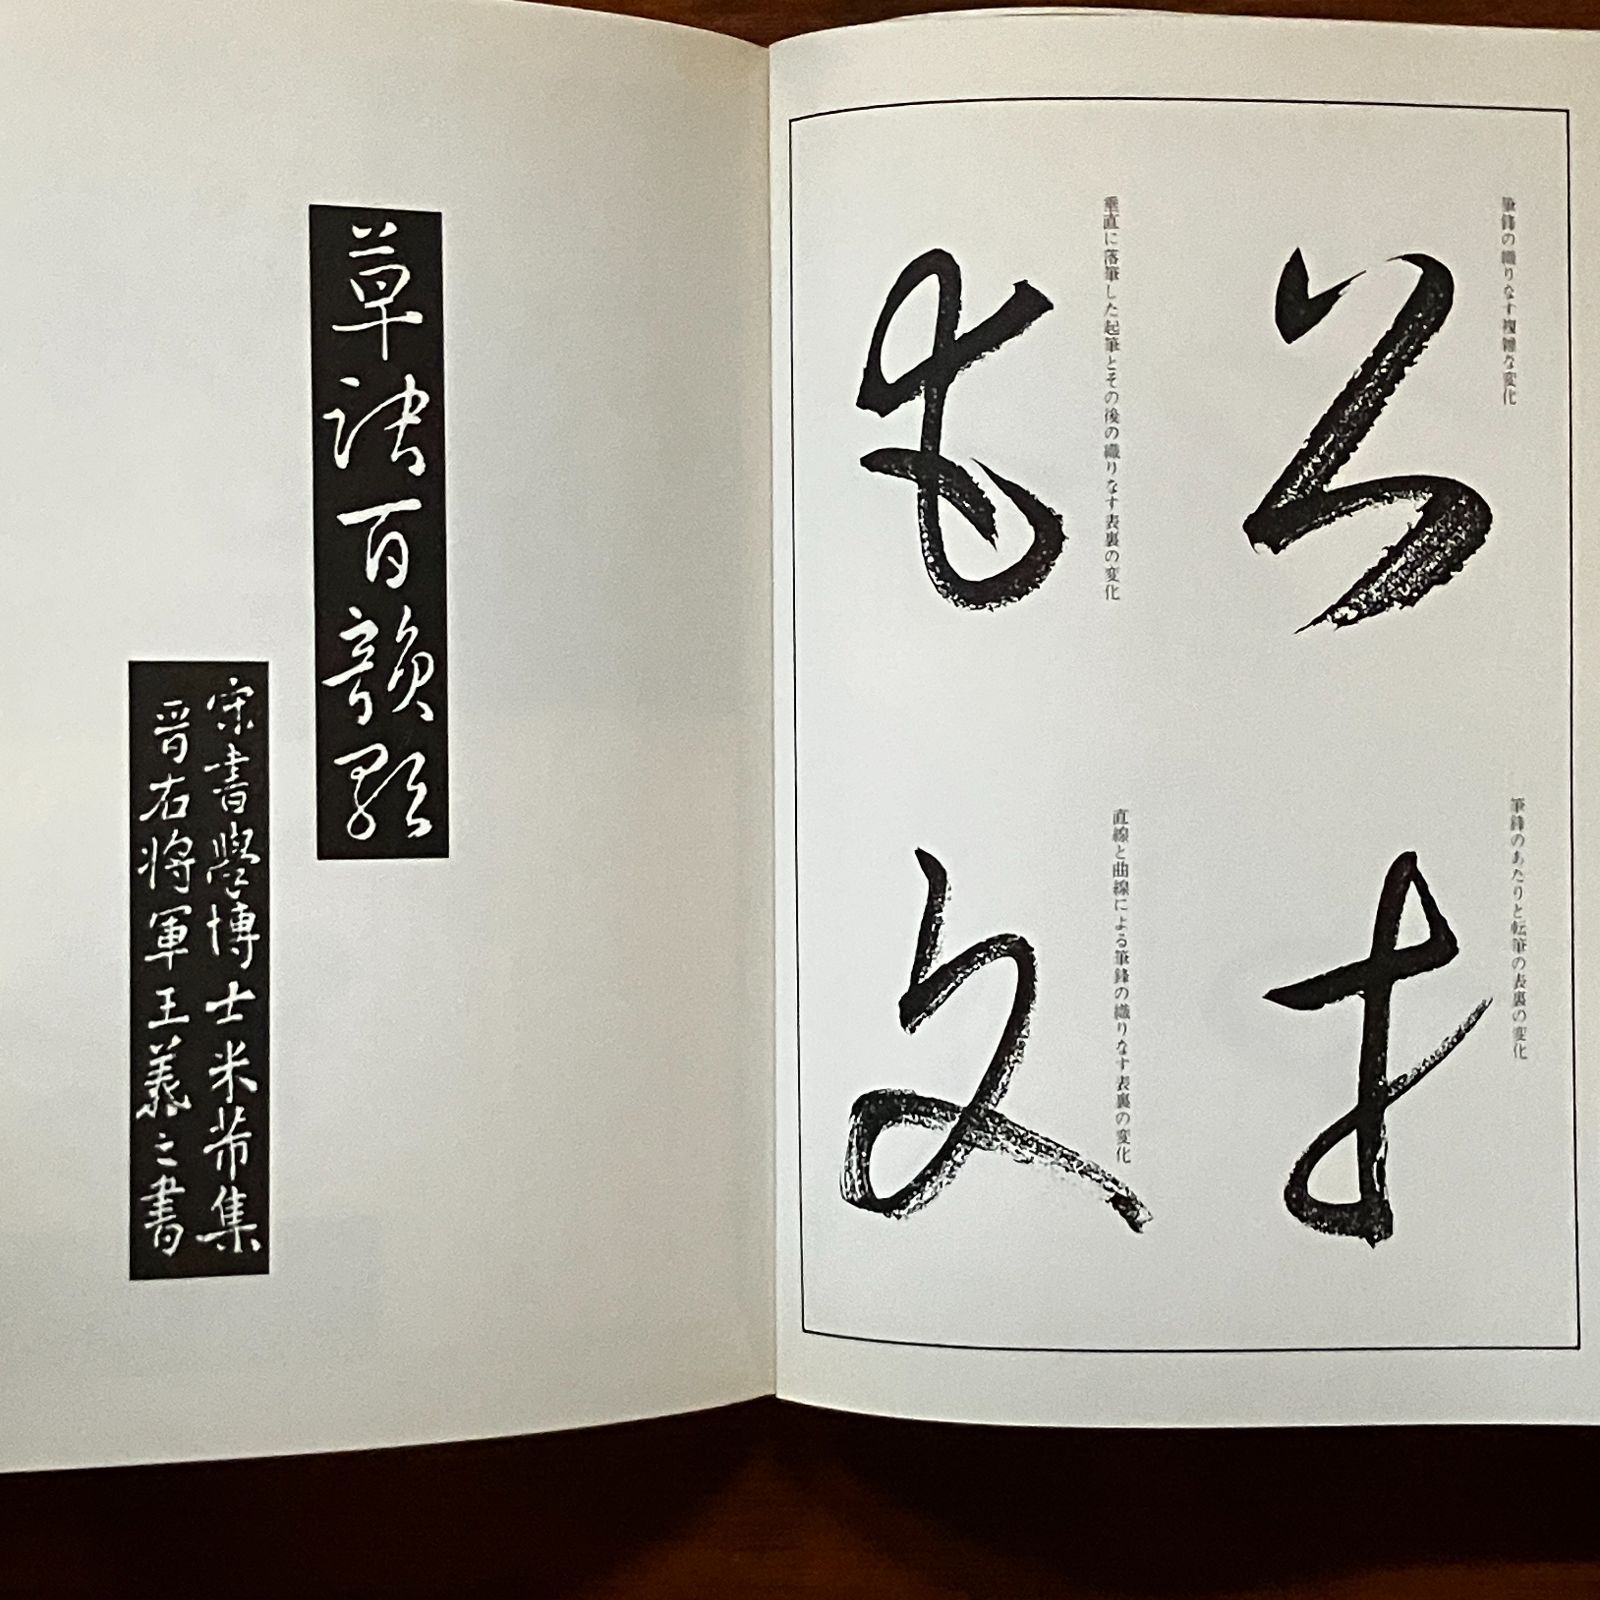 筆鋒の織りなす複雑な変化
筆鋒のあたりと転筆の表裏の変化
垂直に落筆した起筆とその後の織りなす表裏の変化
直線と曲線による筆鋒の織りなす表裏の変化
草訣百韻歌
宋書學博士米芾集
晋右将軍王羲之書